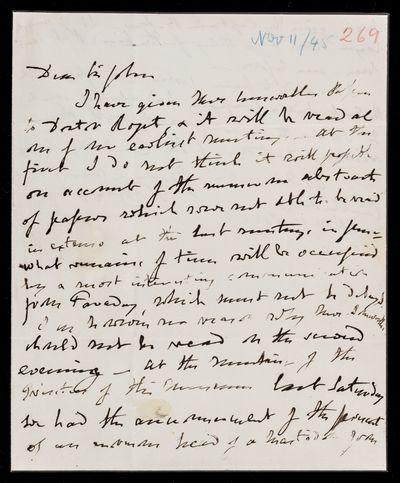 Nov 11/45 269
Dear Sir John
I have given
to Doctor Roget, & it will be read at
one of our earliest meetings. at the
first I do not think it will
on account of the numerous abstracts
of papers which were not able to be read
in extenso at the last meetings in June
what remains of time will be occupied
by a most interesting communication
from Faraday, which must not be delayed
I see however no reason why
should not be read on the second
evening – at the meeting of the
of the Museum last Saturday
we had the announcement of the present
of an enormous head of a Mastodon from